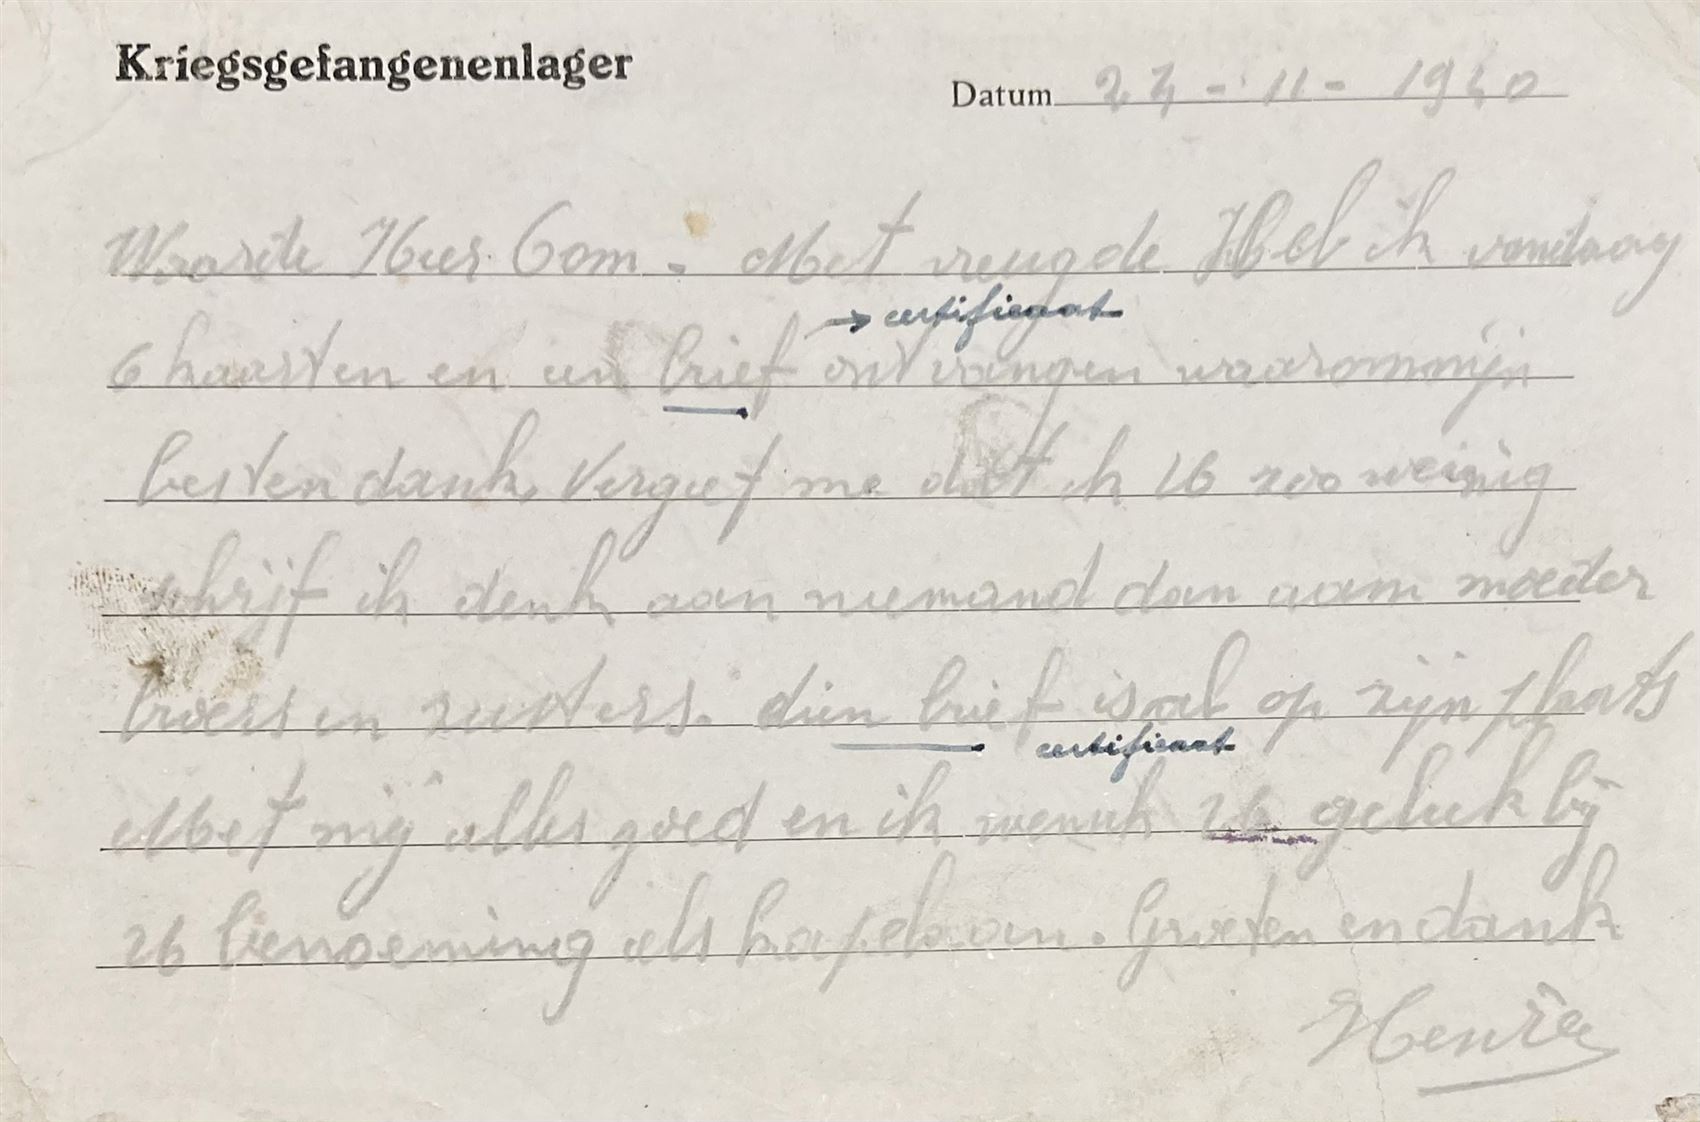 Kriegsgefangenenlager
Datum 24-11-1940
Waarde Heer Oom. Met vreugde Heb ik vandaag
→ certificaat
6 kaarten en een brief ontvangen waarom mijn
besten dank, Vergeef me dat ik U zoo weinig
schrijf ik denk aan niemand dan aan moeder
broers en zusters. dien brief is al op zijn plaats
certificaat
Met mij alles goed en ik wensch U geluk bij
U benoeming als kapelaan. Groeten en dank
Henri